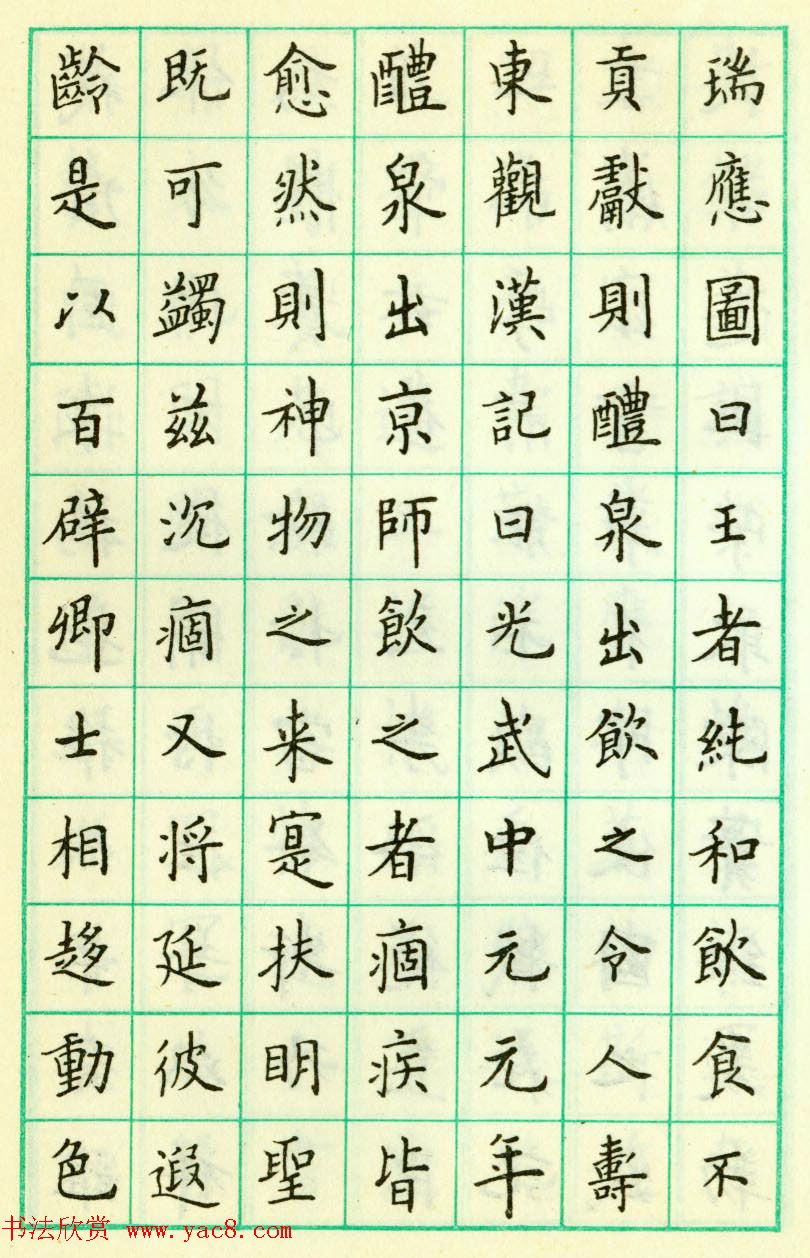 瑞應圖曰王者純和飲食不
貢獻則醴泉出飲之令人壽
東觀漢記曰光武中元元年
醴泉出京師飲之者痼疾皆
愈然則神物之来寔扶明聖
既可蠲兹沉痼又将延彼遐
齡是以百辟卿士相趍動色
书法欣赏 www.yac8.com